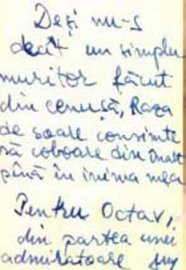 Deși nu-s
decât un simplu
muritor făcut
din cenușă, Raza
de soare consimte
să coboare din înalt
până în inima mea
Pentru Octav,
din partea unei
admiratoare